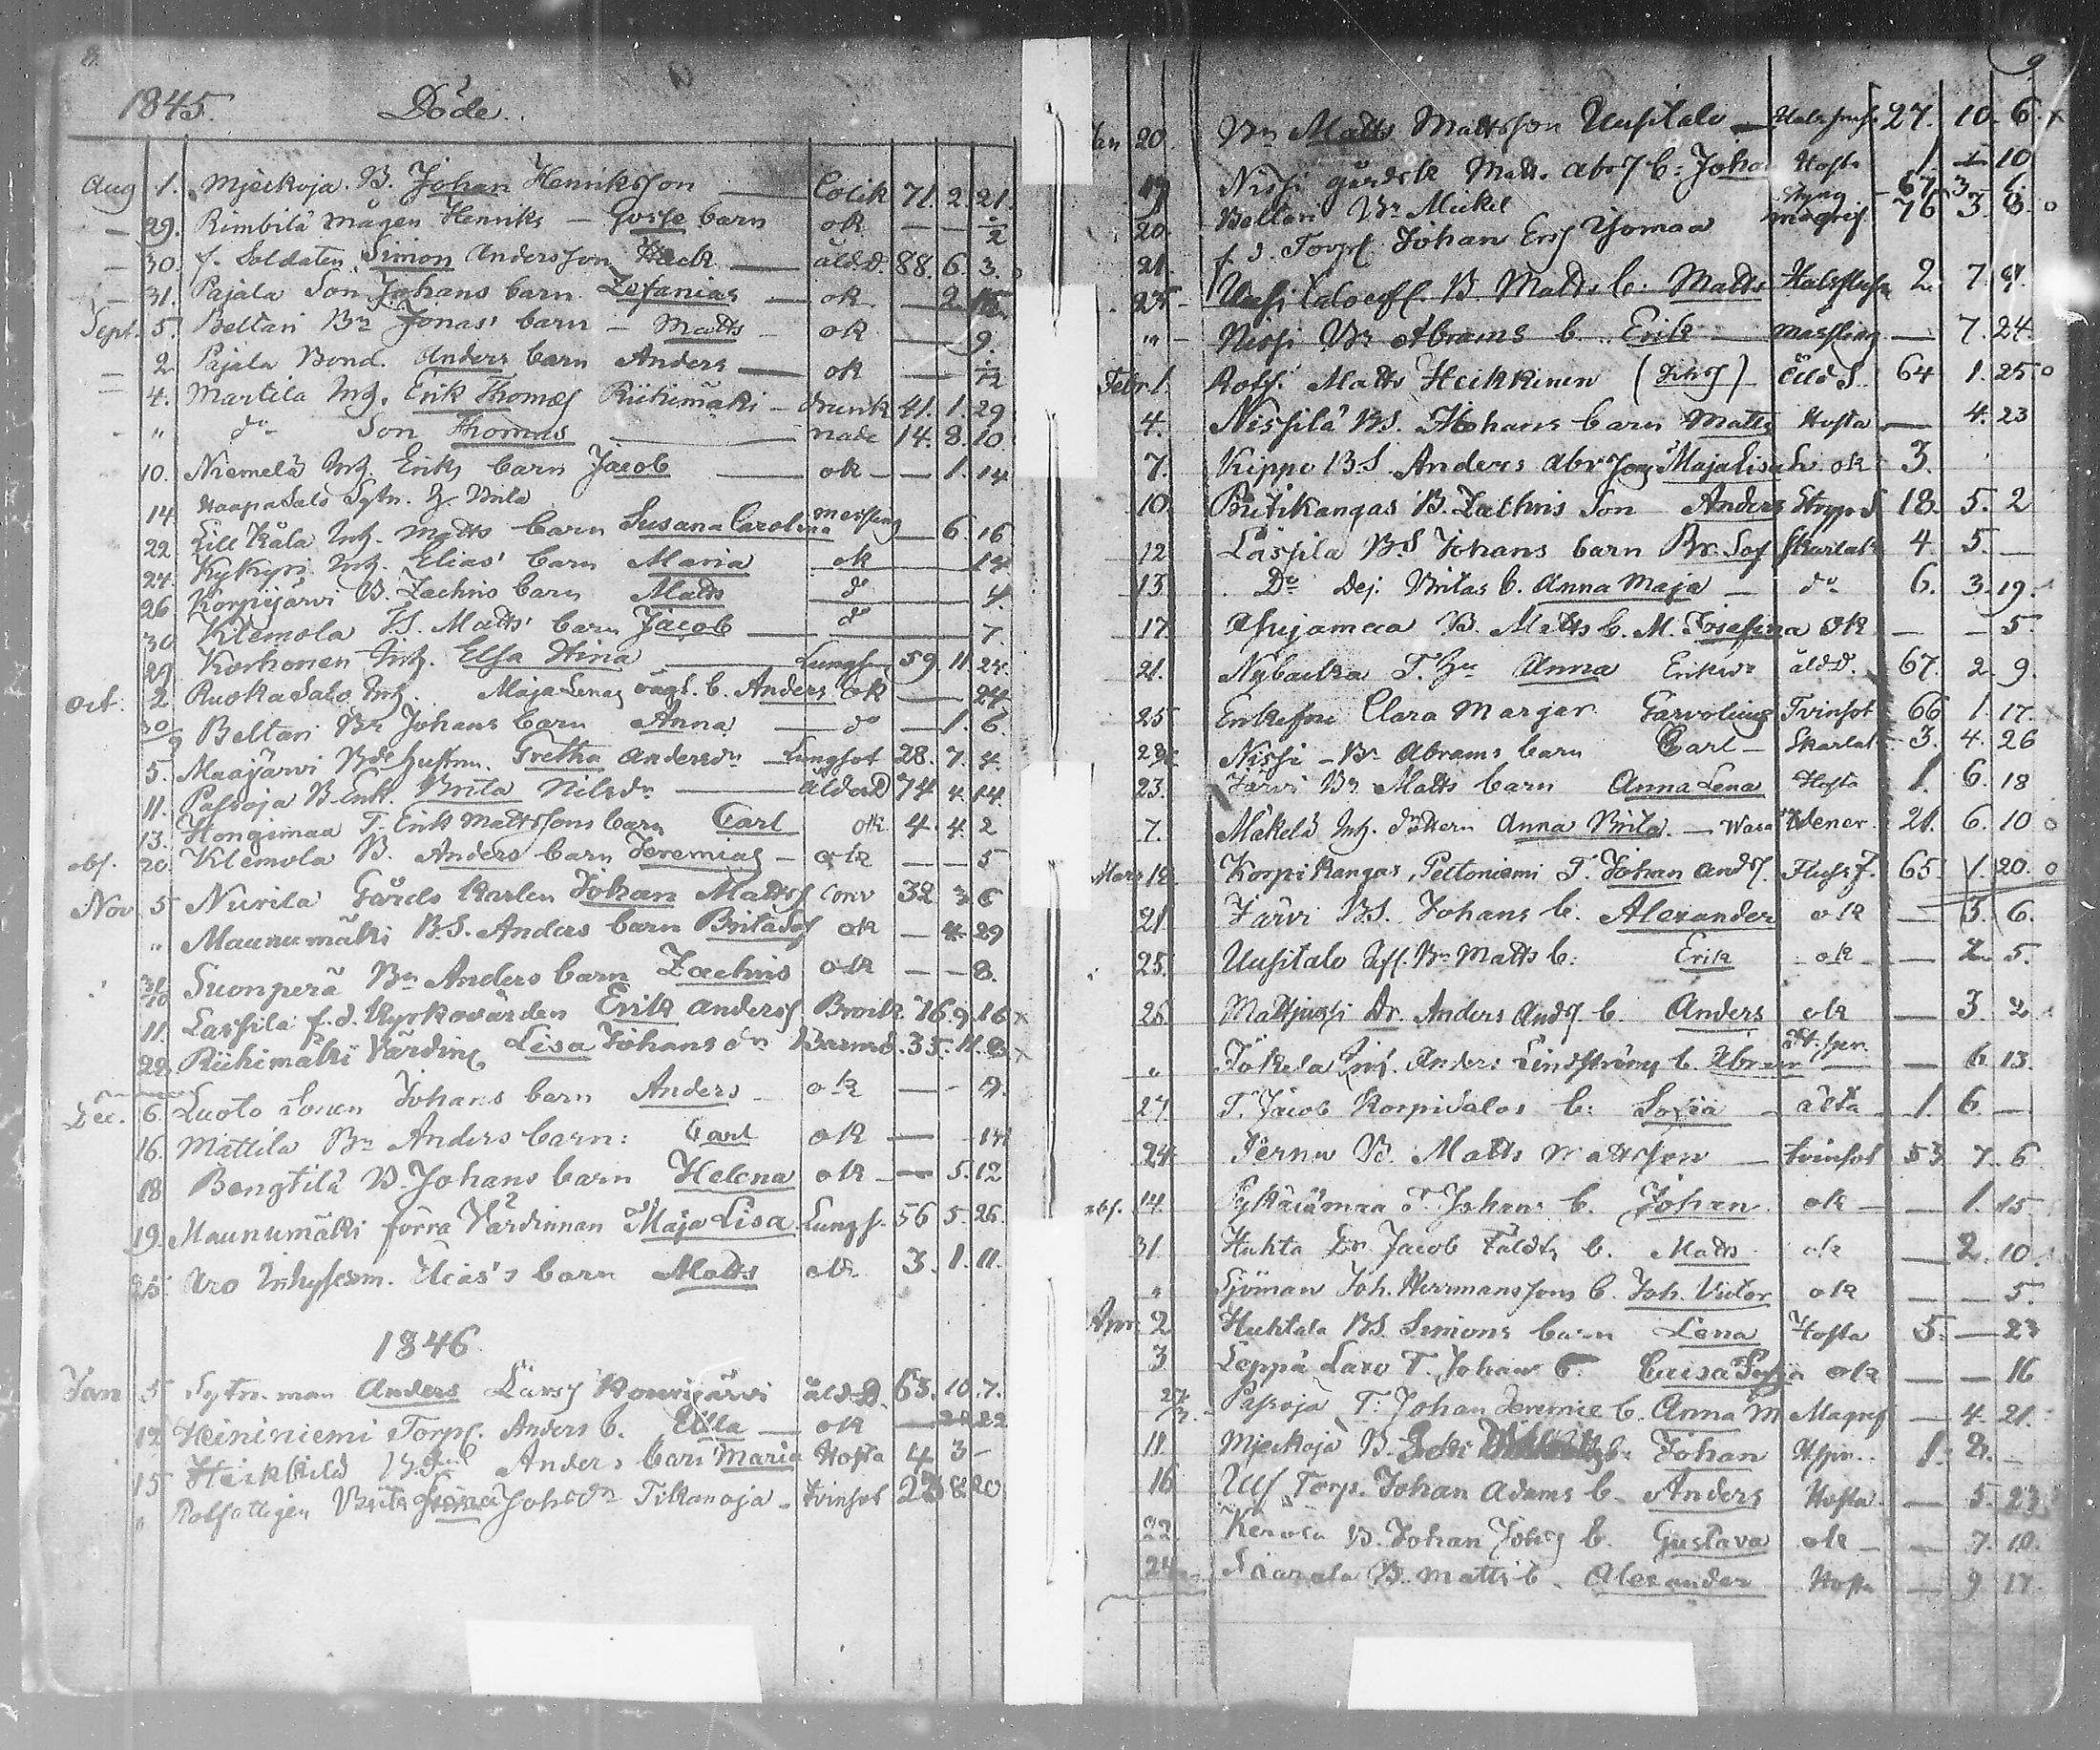 8.
1845. Döde.
Aug 1. Mjeckoja. B. Johan Henriksson — Colik 71. 2. 21.
— 29. Rimbilä mågen Henriks — barn ok — — ½
— 30. f. Soldaten Simon Andersson Hack — åldd. 88. 6. 3.
— 31. Pajala Son Johans barn Zefanias — ok — 2
Sept. 5. Beltari Bn Jonas' barn — Matts — ok — 9
— 2 Pajala Bond. Anders barn Anders — ok —
— 4. Martila Inh. Erik Thomas Riihimäki — drunk 41. 1. 29
" do Son Thomas — nade 14. 8. 10.
10. Niemelä Inh. Eriks barn Jacob — ok — — 1. 14
14 Haapasalo Sytn. Brita
22 Lill Kåla Inh. Matts barn Susana Carolina messling — 6 16
24. Kykyri Inh. Elias' barn Maria ok 14
26 Korpijärvi B. Zachris barn Matts do 4.
30 Klemola Matts' barn Jacob — do 7.
29 Korhonen Inh. Elsa Stina — Lungs 59. 11. 24.
Oct. 2 Ruokasalo Inh. Maja Lenas oägt. b. Anders ok — 24.
30/9 Beltari Bn Johans barn Anna — do — 1. 6.
5. Maajärvi Bde hustru. Gretha Andersdr Lungsot 28. 7. 4.
11. Passoja B. Enk. Brita Nilsdr — ålderd 74 4. 14.
13. Hongimaa T. Erik Mattssons barn Carl ok 4. 4. 2
obs. 20. Klemola B. Anders barn Jeremias — ok — — 5
Nov 5 Nurila Gårdskarlen Johan Mattss conv 32 3 6
" Maunumäki B.S. Anders barn Brita Sof ok — 4. 29
31/10 Suonperä Bn Anders barn Zachris ok — — 8.
11. Lassila f.d. Kyrkovärden Erik Anderss Bronk 76. 9. 16 x
22. Riihimäki Värdin Lisa Johansdr Barnsd. 35. 11. x
Dec. 6. Luoto Sonen Johans barn Anders — ok — - 9.
16. Mattila Bn Anders barn: Carl ok — 14
18 Bengtilä B. Johans barn Helena ok — 5. 12
19. Maunumäki förra Värdinnan Maja Lisa Lungs. 56 5. 26.
25. Aro Inhysesm. Elias's barn Matts ok 3. 1. 11.
1846
Jan 5 Sytn. man Anders Larss Kouvijärvi åldd. 63. 10. 7.
12 Heininiemi Torp. Anders b. Ulla — ok — 22
15 Heikkilä Anders barn Maria Hosta 4 3 -
" Rotfattigen Brita Johsdr Tikanoja - tvinsot 8 20
9
Jan 20. Bn Matts Mattsson Uusitalo — Halsfluss 27. 10. 6. x
19 Nissi gårdsk Matts Abrs b: Johan Hosta 1 — 10
20 Beltari Bn Mickel Styng — 67. 3.
21. f. d. Torp. Johan Ers Yomaa magref 76 3. o
25. Uusitalo B Matts b: Matts Halsflussn 2. 7.
" — Nissi Bn Abrams b. Erik — messling — 7. 24.
Febr. 1. Rotf. Matts Heikkinen (Johs) åldd. 64 1. 25 o
4. Nissilä BS. Johans barn Matts Hosta — 4. 23
7. Kippo BS Anders Maja Lisa ok 3.
10. Piitikangas B. Zachris Son Anders 18. 5. 2
12. Lassila BS Johans barn Br. Sof Skarlak 4. 5. —
13. Do Dej. Britas b. Anna Maja — do 6. 3. 19.
17. Ahujamaa B. Matts b. M. Josefina ok — — 5.
21. Nybacka T. Hu Anna Eriksdr åldd. 67. 2. 9.
25 Enkefru Clara Margar. Garvolius Tvinsot 66 1. 17. x
Nissi — Bn Abrams barn Carl — Skarlak 3. 4. 26
23. Järvi Bn Matts barn Anna Lena Hosta 1. 6. 18
7. Mäkelä Inh. dottern Anna Brita. — Wasa Vener. 21. 6. 10 o
Mars 12. Korpikangas, Peltoniemi T. Johan Ands. 65. 1. 20. o
21. Järvi BS. Johans b. Alexander ok — 3. 6.
25. Uusitalo Bn Matts b: Erik ok — 5.
26 Mattjussi Dr. Anders Ands b. Anders ok — 3. 2
" Jokela Inh. Anders Lindströms b. Abram — 6. 13.
27 T. Jacob Korpisalos b: Sofia — älta — 1. 6 —
24. Pernu B. Matts Mattsson — tvinsot 53 7. 6
obs. 14. Pykäläimaa T. Johans b. Johan ok — — 1. 15
31. Huhta Dr. Jacob Faldts b. Matts ok — 2. 10.
" Sjöman Joh. Hermanssons b. Joh. Victor ok — — 5.
Apr. 2 Huhtala BS. Simons barn Lena Hosta 5. — 23
3 Leppä Laro T. Johan b. Caisa Sofia ok — — 16
27/3. Passoja T. Johan b. Anna M Magref — 4. 21.
11. Mjeckoja B. b: Johan 1. 2. —
16 Ulf Torp. Johan Adams b. Anders Hosta — 5. 23
22. Kerola B. Johan Johs b. Gustava ok — — 7. 10.
24. Siarala B. Matts b. Alexander Hosta — 9 17.